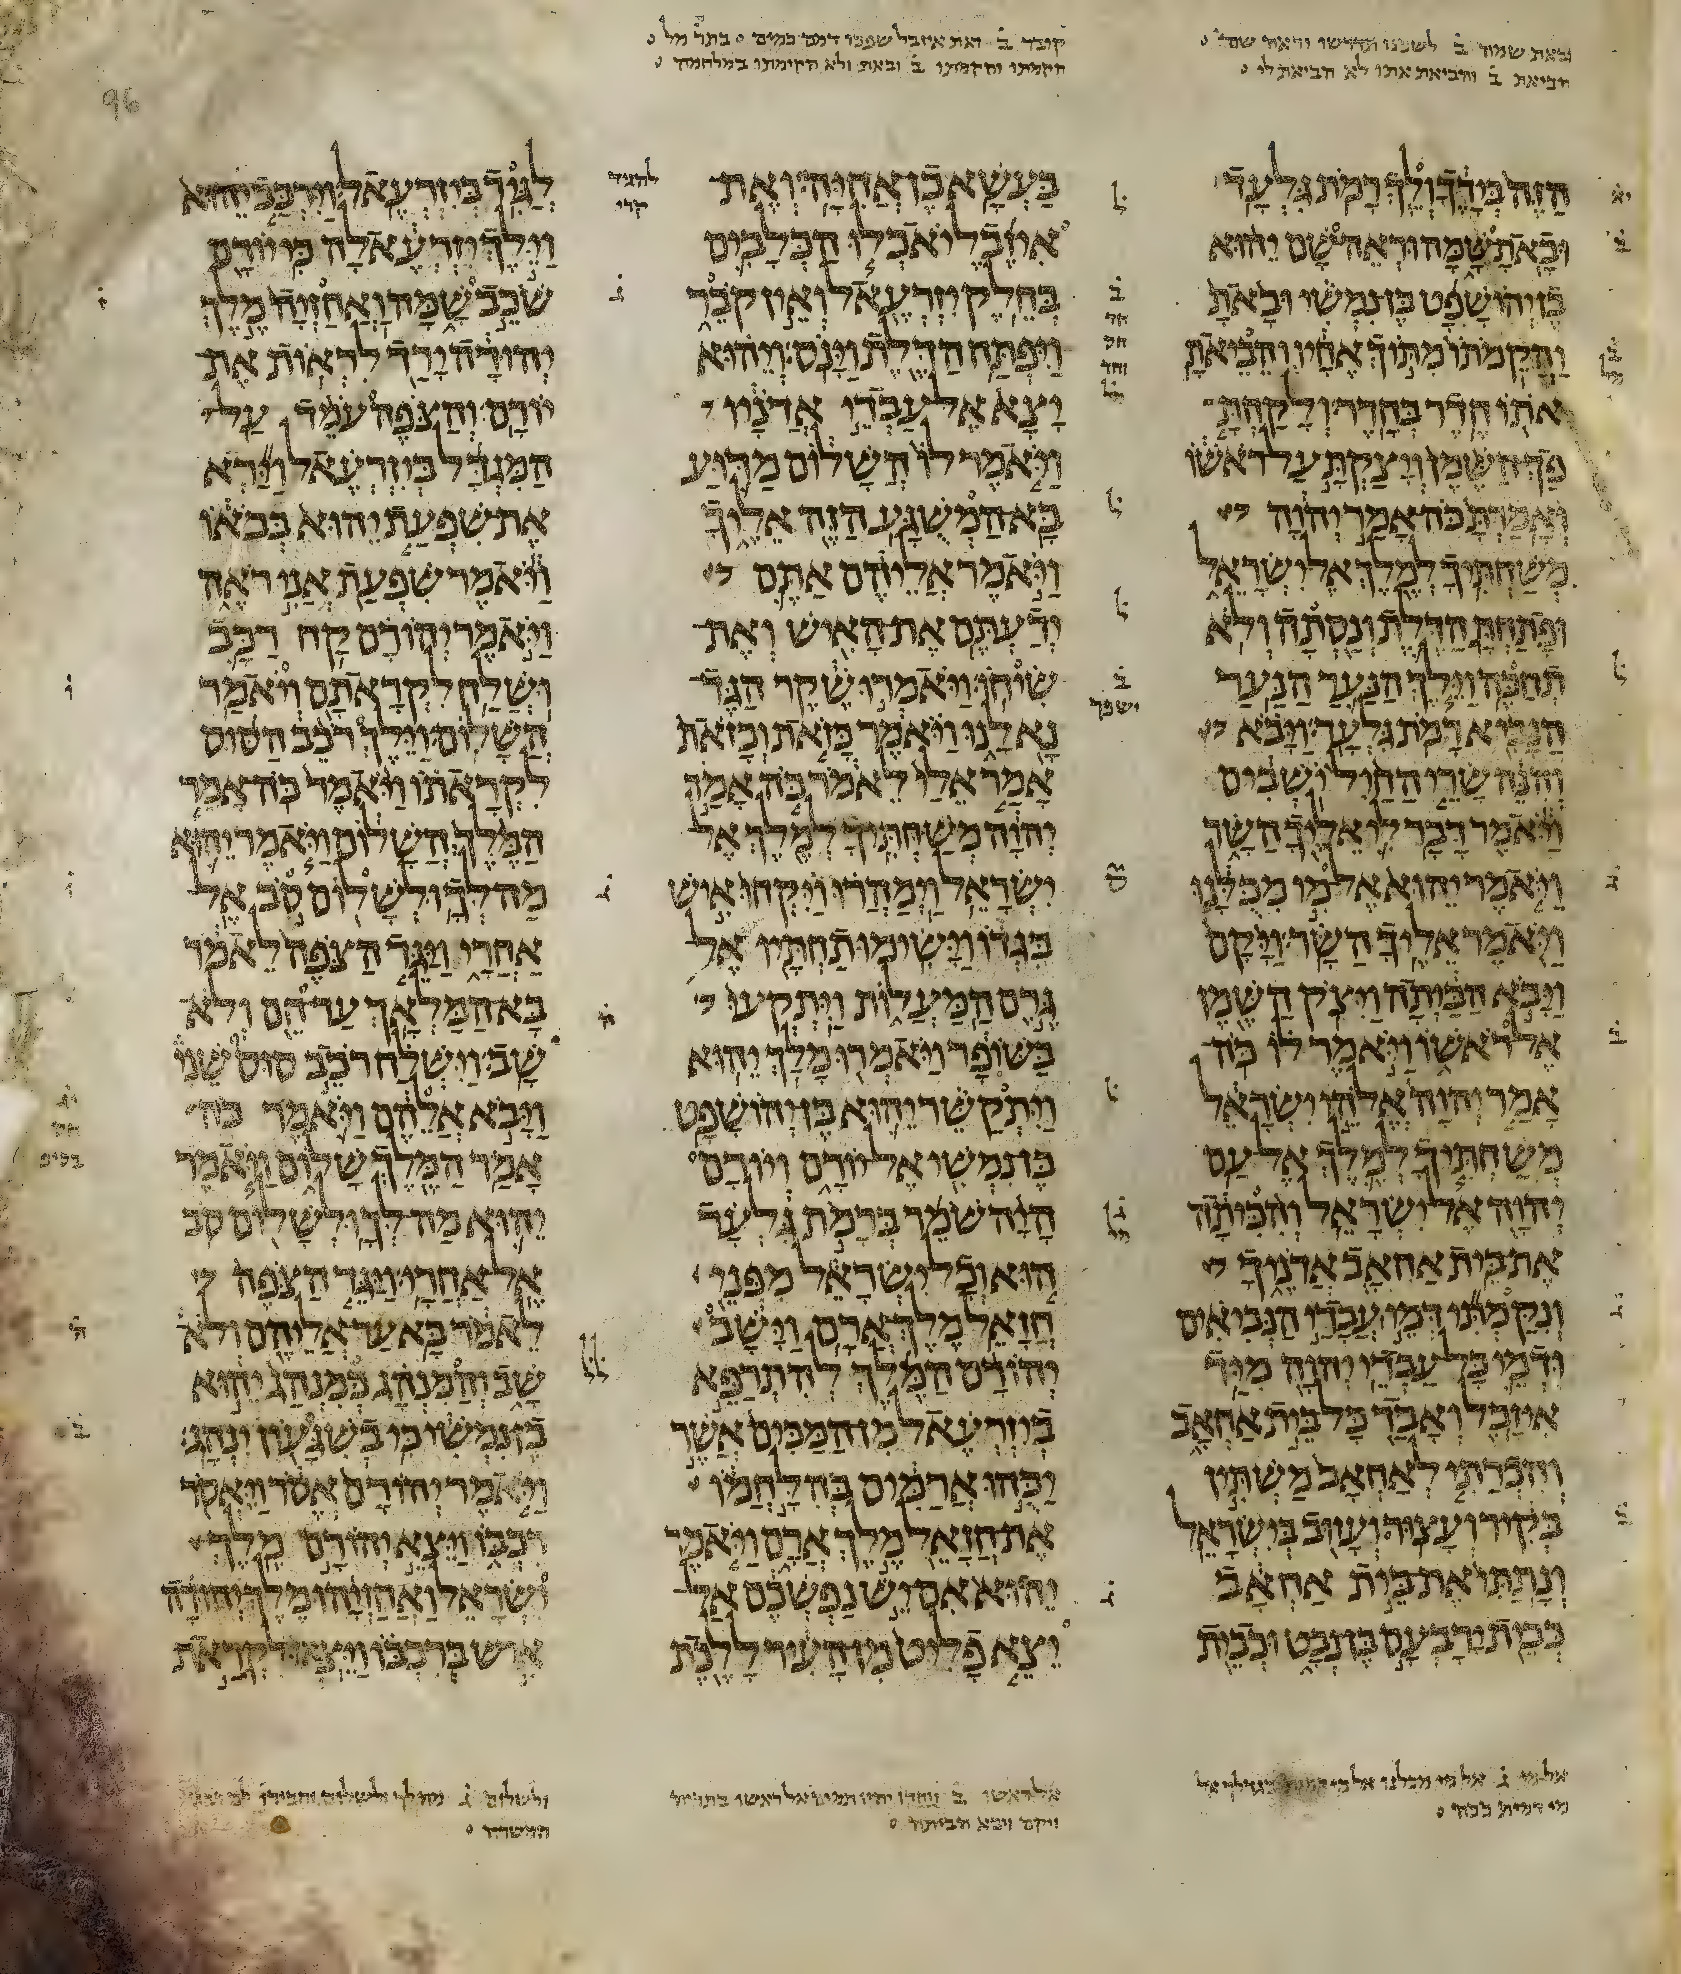 ובאת שמה ב לשכנו תדרשו ובאת שמה
הביאת ב והביאת אתו לא הביאת לי
קובר ב ואת איזבל שפכו דמם כמים
הקמתו והקמתו ב ובאת ולא הקימתו במלחמה
הזה בידך ולך רמת גלעד
ובאת שמה וראה שם יהוא
בן יהושפט בן נמשי ובאת
והקמתו מתוך אחיו והביאת
אתו חדר בחדר ולקחת
פך השמן ויצקת על ראשו
ואמרת כה אמר יהוה
משחתיך למלך אל ישראל
ופתחת הדלת ונסתה ולא
תחכה וילך הנער הנער
הנביא רמת גלעד ויבא
והנה שרי החיל ישבים
ויאמר דבר לי אליך השר
ויאמר יהוא אל מי מכלנו
ויאמר אליך השר ויקם
ויבא הביתה ויצק השמן
אל ראשו ויאמר לו כה
אמר יהוה אלהי ישראל
משחתיך למלך אל עם
יהוה אל ישראל והכיתה
את בית אחאב אדניך
ונקמתי דמי עבדי הנביאים
ודמי כל עבדי יהוה מיד
איזבל ואבד כל בית אחאב
והכרתי לאחאב משתין
בקיר ועצור ועזוב בישראל
ונתתי את בית אחאב
כבית ירבעם בן נבט וכבית
בעשא בן אחיה ואת
איזבל יאכלו הכלבים
בחלק יזרעאל ואין קבר
ויפתח הדלת וינס ויהוא
יצא אל עבדי אדניו
ויאמר לו השלום מדוע
בא המשגע הזה אליך
ויאמר אליהם אתם
ידעתם את האיש ואת
שיחו ויאמרו שקר הגד
נא לנו ויאמר כזאת וכזאת
אמר אלי לאמר כה אמר
יהוה משחתיך למלך אל
ישראל וימהרו ויקחו איש
בגדו וישימו תחתיו אל
גרם המעלות ויתקעו
בשופר ויאמרו מלך יהוא
ויתקשר יהוא בן יהושפט
בן נמשי אל יורם ויורם
היה שמר ברמת גלעד
הוא וכל ישראל מפני
חזאל מלך ארם וישב
יהורם המלך להתרפא
ביזרעאל מן המכים אשר
יכהו ארמים בהלחמו
את חזאל מלך ארם ויאמר
יהוא אם יש נפשכם אל
יצא פליט מן העיר ללכת
להגיד
קרי
לגיד ביזרעאל וירכב יהוא
וילך יזרעאלה כי יורם
שכב שמה ואחזיה מלך
יהודה ירד לראות את
יורם והצפה עמד על
המגדל ביזרעאל וירא
את שפעת יהוא בבאו
ויאמר שפעת אני ראה
ויאמר יהורם קח רכב
ושלח לקראתם ויאמר
השלום וילך רכב הסוס
לקראתו ויאמר כה אמר
המלך השלום ויאמר יהוא
מה לך ולשלום סב אל
אחרי ויגד הצפה לאמר
בא המלאך עד הם ולא
שב וישלח רכב סוס שני
ויבא אלהם ויאמר כה
אמר המלך שלום ויאמר
יהוא מה לך ולשלום סב
אל אחרי ויגד הצפה
לאמר בא עד אליהם ולא
שב והמנהג כמנהג יהוא
בן נמשי כי בשגעון ינהג
ויאמר יהורם אסר ויאסר
רכבו ויצא יהורם מלך
ישראל ואחזיהו מלך יהודה
איש ברכבו ויצאו לקראת
אל מי ג אל מי מכלנו אל מי דמית בגדלך אל
מי דמית ככה
אל ראשו ב יהיו תמים אל ראשו
ויקם ויבא הביתה
ולשלום ג מה לך ולשלום
המשרה